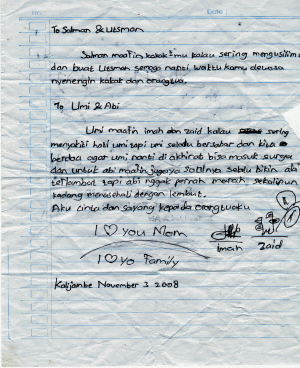 To Salman & Utsman
Salman maafin kakak²mu kalau sering mengusilim
dan buat Utsman semoga nanti waktu kamu dewasa
nyenengin kakak dan orangtua.
To Umi & Abi
Umi maafin imah dan zaid kalau sering
menyakiti hati umi tapi umi selalu bersabar dan bisa
berdoa agar umi nanti di akhirat bisa masuk surga
dan untuk abi maafin jugaya soalnya selalu bikin abi
terlambat tapi abi nggak pernah marah sekalipun
kadang menasehati dengan lembut.
Aku cinta dan sayang kepada orangtuaku
I ♡ you Mom
I ♡ yo Family
Imah Zaid
November 3 2008